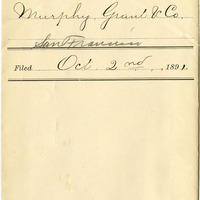 Murphy, Grant & Co.
San Francisco
Filed Oct. 2nd, 1891.